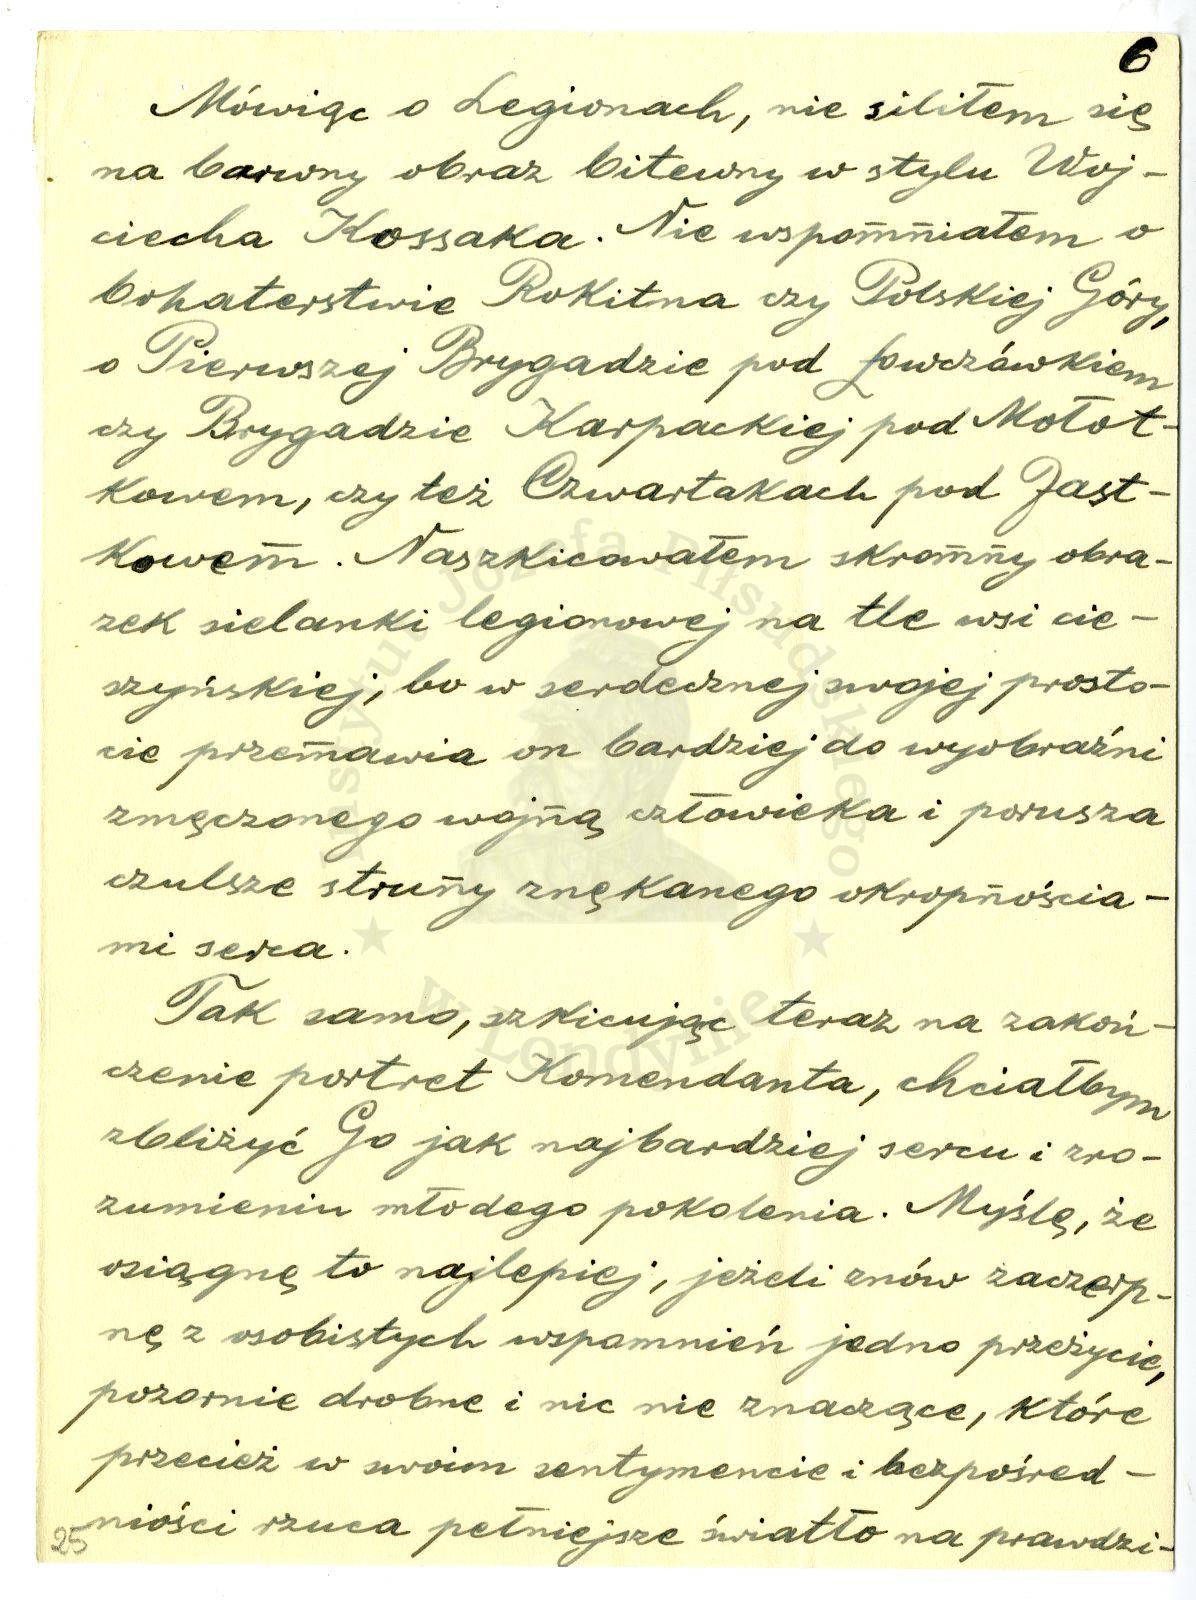 6
Mówiąc o Legionach, nie siliłem się
na barwny obraz bitewny w stylu Woj-
ciecha Kossaka. Nie wspom̄n̄iałem o
bohaterstwie Rokitna czy Polskiej Góry,
o Pierwszej Brygadzie pod Łowczówkiem
czy Brygadzie Karpackiej pod Mołot-
kowem, czy też Czwartakach pod Jast-
kowem̄. Naszkicowałem skrom̄n̄y obra-
zek sielanki legionowej na tle wsi cie-
szyńskiej, bo w serdecznej swojej prosto-
cie przem̄awia on bardziej do wyobraźni
zmęczonego wojn̄ą człowieka i porusza
czulsze strun̄y znękanego okropn̄ościa-
mi serca.
Tak samo, szkicując teraz na zakoń-
czenie portret Komendanta, chciałbym
zbliżyć Go jak najbardziej sercu i zro-
zumieniu młodego pokolenia. Myślę, że
osiągnę to najlepiej, jeżeli znów zaczerp-
nę z osobistych wspomnień jedno przeżycie,
pozornie drobne i nic nie znaczące, które
przecież w swoim sentymencie i bezpośred-
niości rzuca pełniejsze światło na prawdzi-
25
Instytut Józefa Piłsudskiego
w Londynie